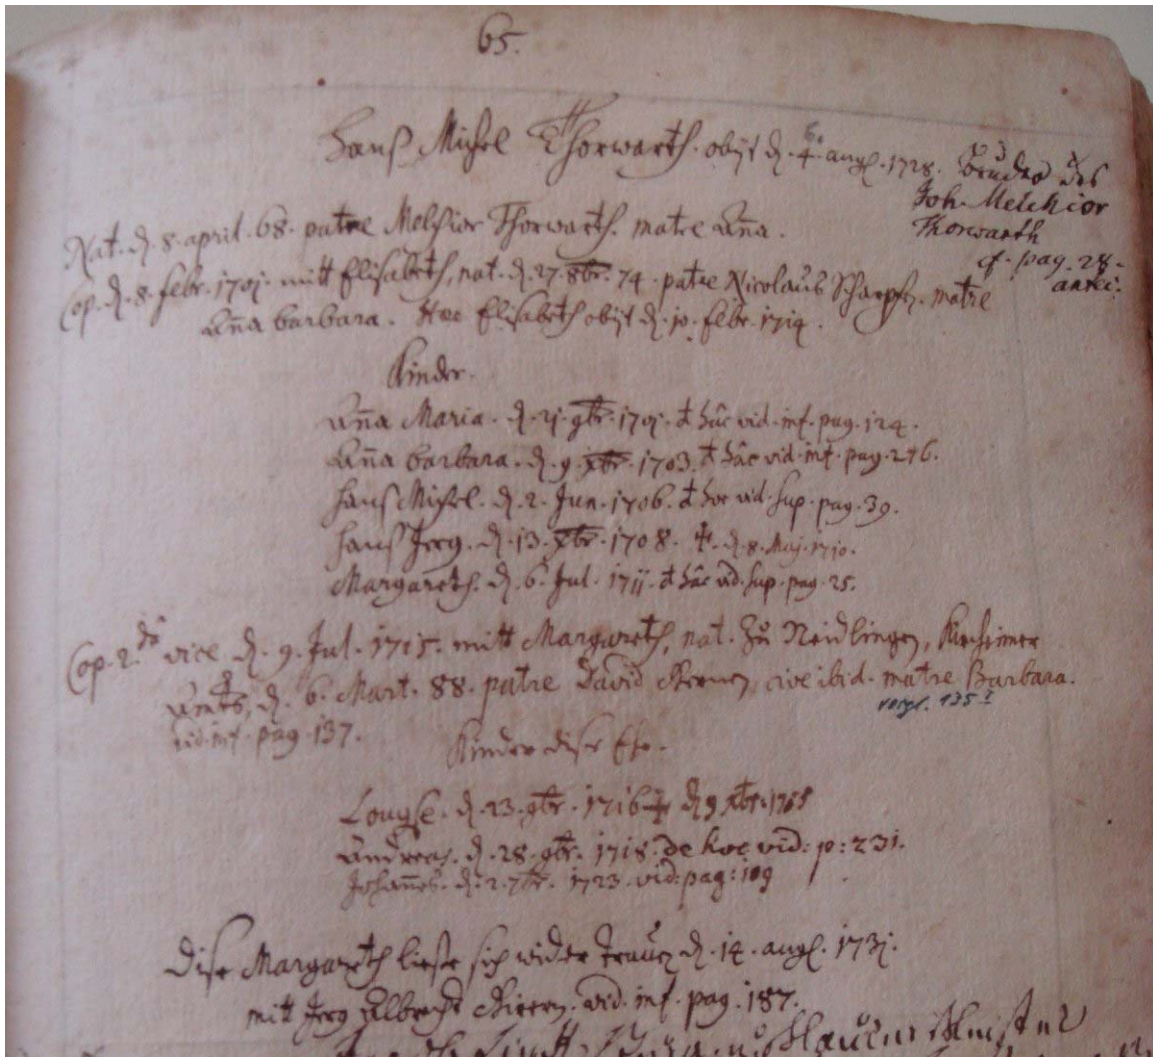 65.
Hanß Michel Thorwarth. obijt d. 4. aug. 1728.
6.
Bruder des
Joh. Melchior
Thorwarth
cf. pag. 28.
antec.
Nat. d. 8. april. 68. patre Melchior Thorwarth. matre Aña.
Cop. d. 8. febr. 1701. mitt Elisabeth, nat. d. 27. 8br. 74. patre Nicolaus Scharpfen. matre
Aña barbara. Hæc Elisabeth obijt d. 10. febr. 1714.
Kinder.
Aña Maria. d. 21. 9br. 1701. d hâc vid. inf. pag. 124.
Aña barbara. d. 9. xbr. 1703. d hâc vid. inf. pag. 276.
Hanß Michel. d. 2. Jun. 1706. d hoc vid. sup. pag. 39.
Hanß Jerg. d. 13. xbr. 1708. †. d. 8. Maj. 1710.
Margareth. d. 6. Jul. 1711. d hâc vid. sup. pag. 25.
Cop. 2.dâ vice d. 9. Jul. 1715. mitt Margareth, nat. zu Neidlingen, Kirchheimer
Ambts, d. 6. Mart. 88. patre David cive ibid. matre Barbara.
vergl. 135 I
vid. inf. pag. 137.
Kinder diser Ehe.
Louyse. d. 23. 9br. 1716 † d 9 xbr. 1785
Andreas. d. 28. 9br. 1718. de hoc vid: p: 231.
Johañes. d. 2. 7br. 1723. vid: pag: 109
Dise Margareth ließe sich wider trauen d. 14. aug. 1731.
mitt Jerg Albrecht vid. inf. pag. 187.